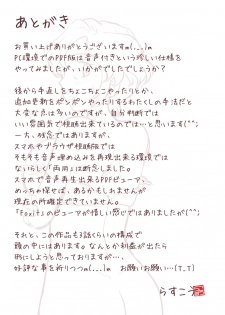 あとがき
お買い上げありがとうございますm(...)m
PC環境でのPDF版は音声付きという珍しい仕様を
やってみましたが、いかがでしたでしょうか?
後から手直しをちょこちょこやったりとか、
追加更新をポンポンやったりするわたくしの手法だと
大変な点は多いのですが、自分判断では
いい雰囲気で視聴出来ているのでは…と思います(^^;
一方、残念ではありますが、
スマホやブラウザ視聴版では
そもそも音声埋め込みを再現出来る環境では
ないらしく「両用」は断念しました。
スマホで音声再生出来るPDFビューア、
めっちゃ探せば、あるかもしれませんが
現在の所確定できていません。
「Foxit」のビューアが惜しい感じではありましたが(^^;
それと、この作品も3話くらいの構成で
頭の中にはあります。なんとか利益が出たら
形にしようと思っておりますが、
好評な事を祈りつつm(...)m お願いお願い…(T.T)
らすこう